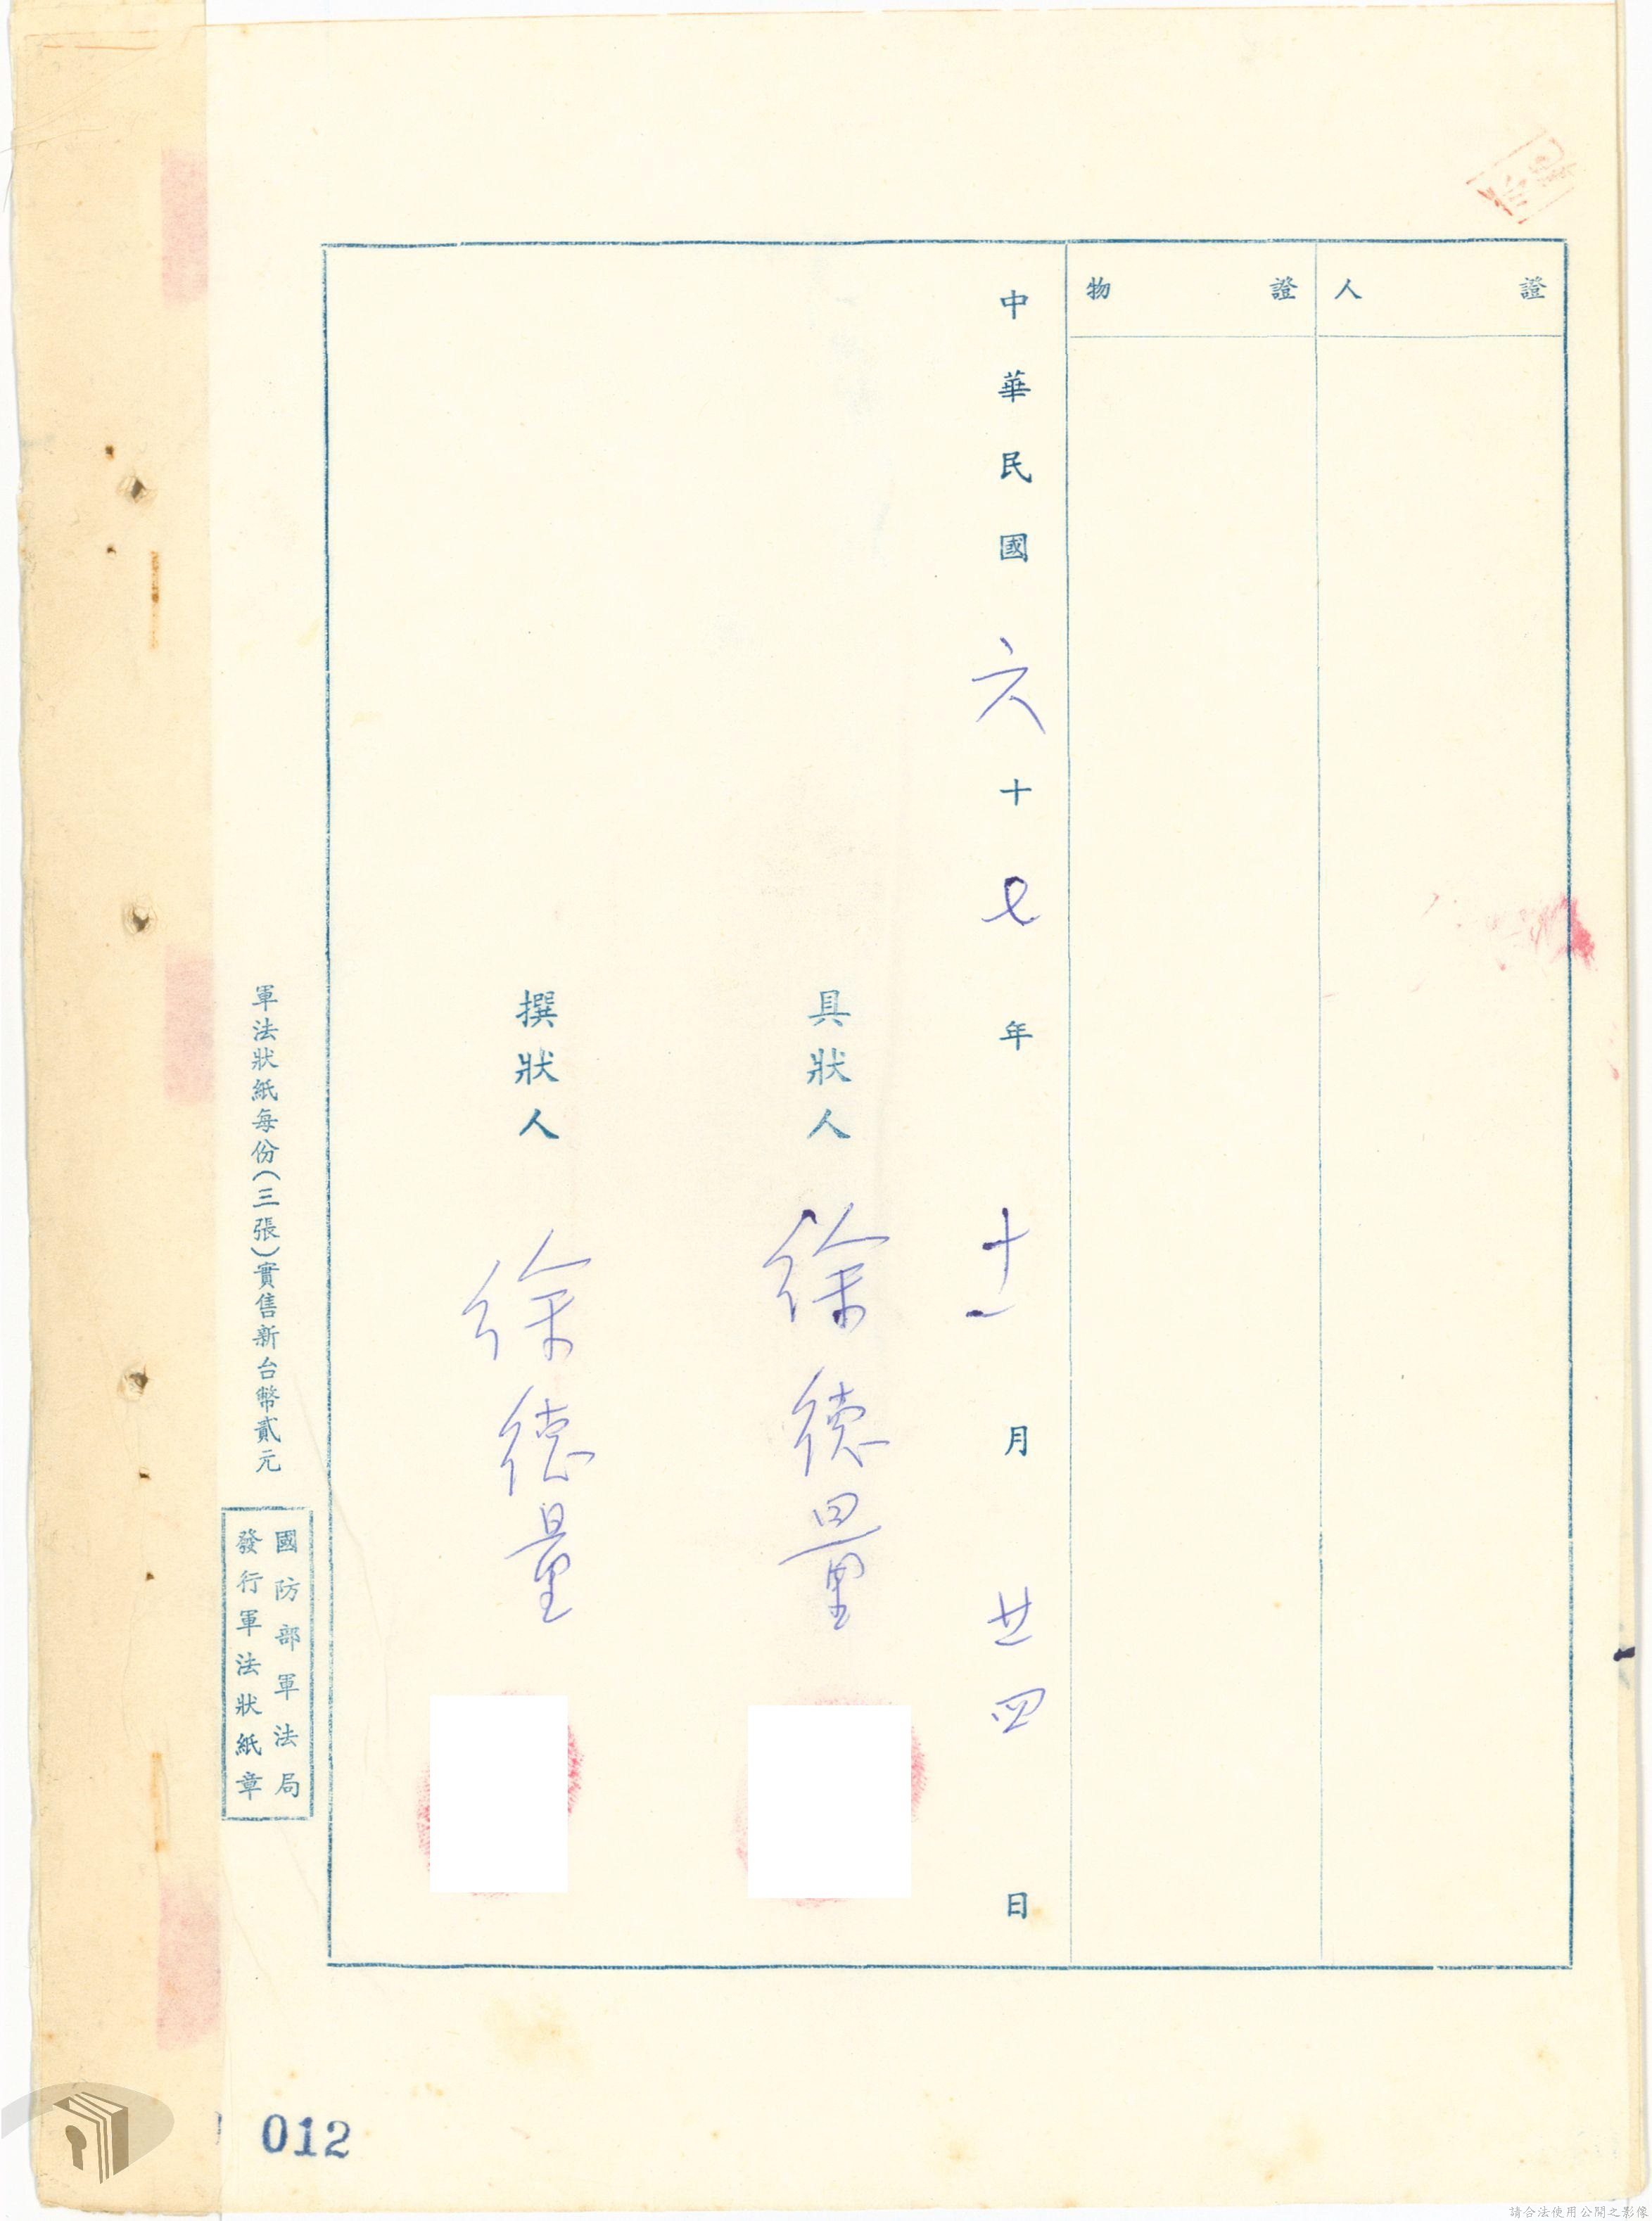 證人
證物
中華民國六十七年十一月廿四日
具狀人 徐德量
撰狀人 徐德量
軍法狀紙每份(三張)實售新台幣貳元
國防部軍法局
發行軍法狀紙章
012
請合法使用公開之影像